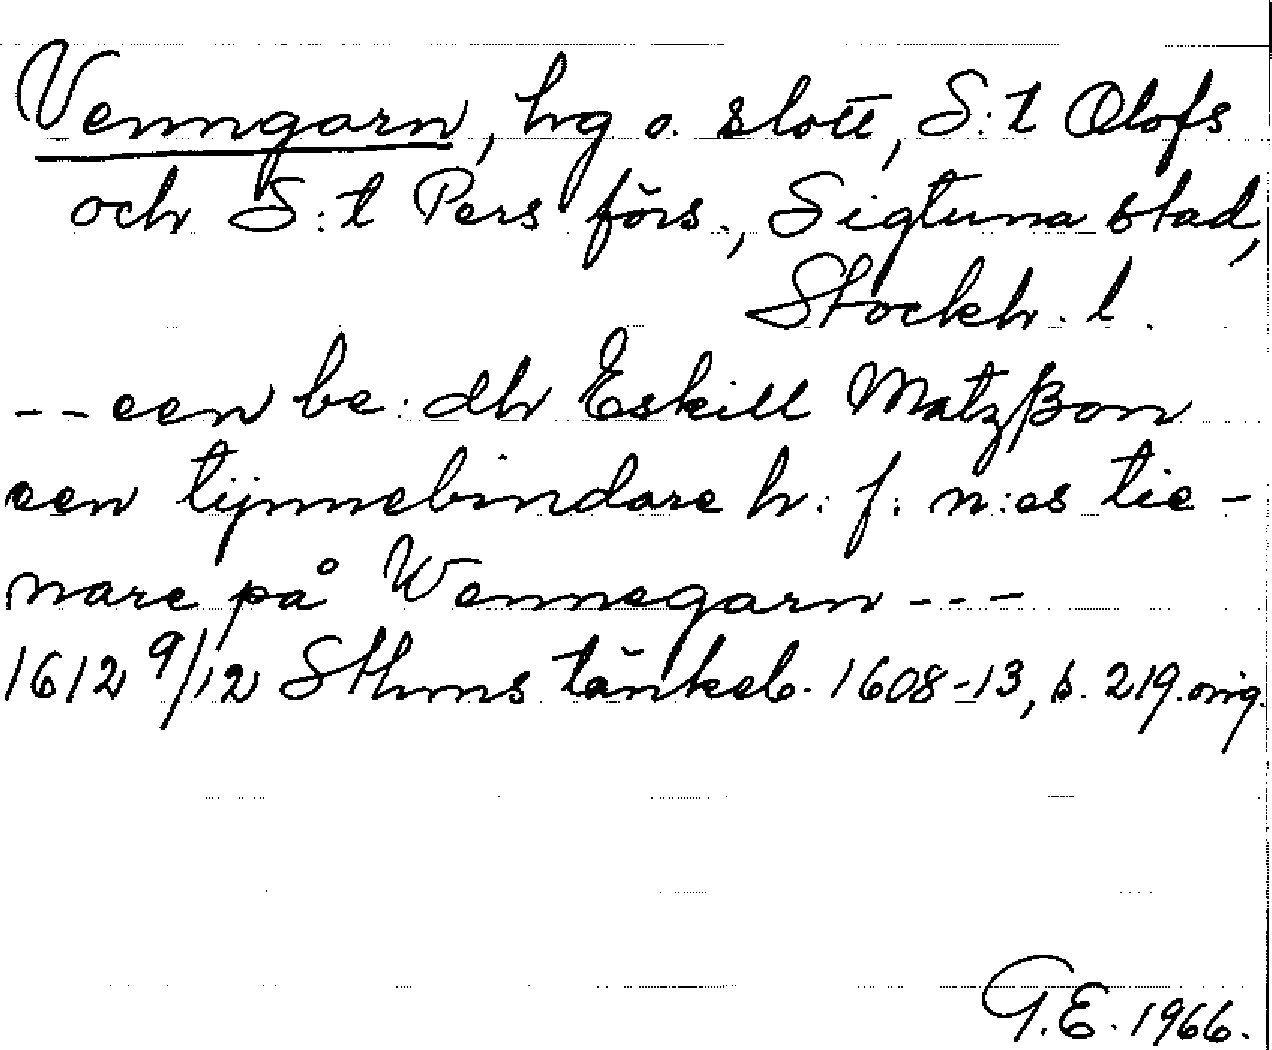 Venngarn, hg o. slott, S:t Olofs
och S:t Pers förs., Sigtuna stad,
Stockh. l.
--een be: dhr Eskill Matzßon
een tijnnebindare h: f: n:es tie-
nare på Wennegarn ---
1612 9/12 Sthms tänkeb. 1608-13, s. 219. orig.
G.E. 1966.